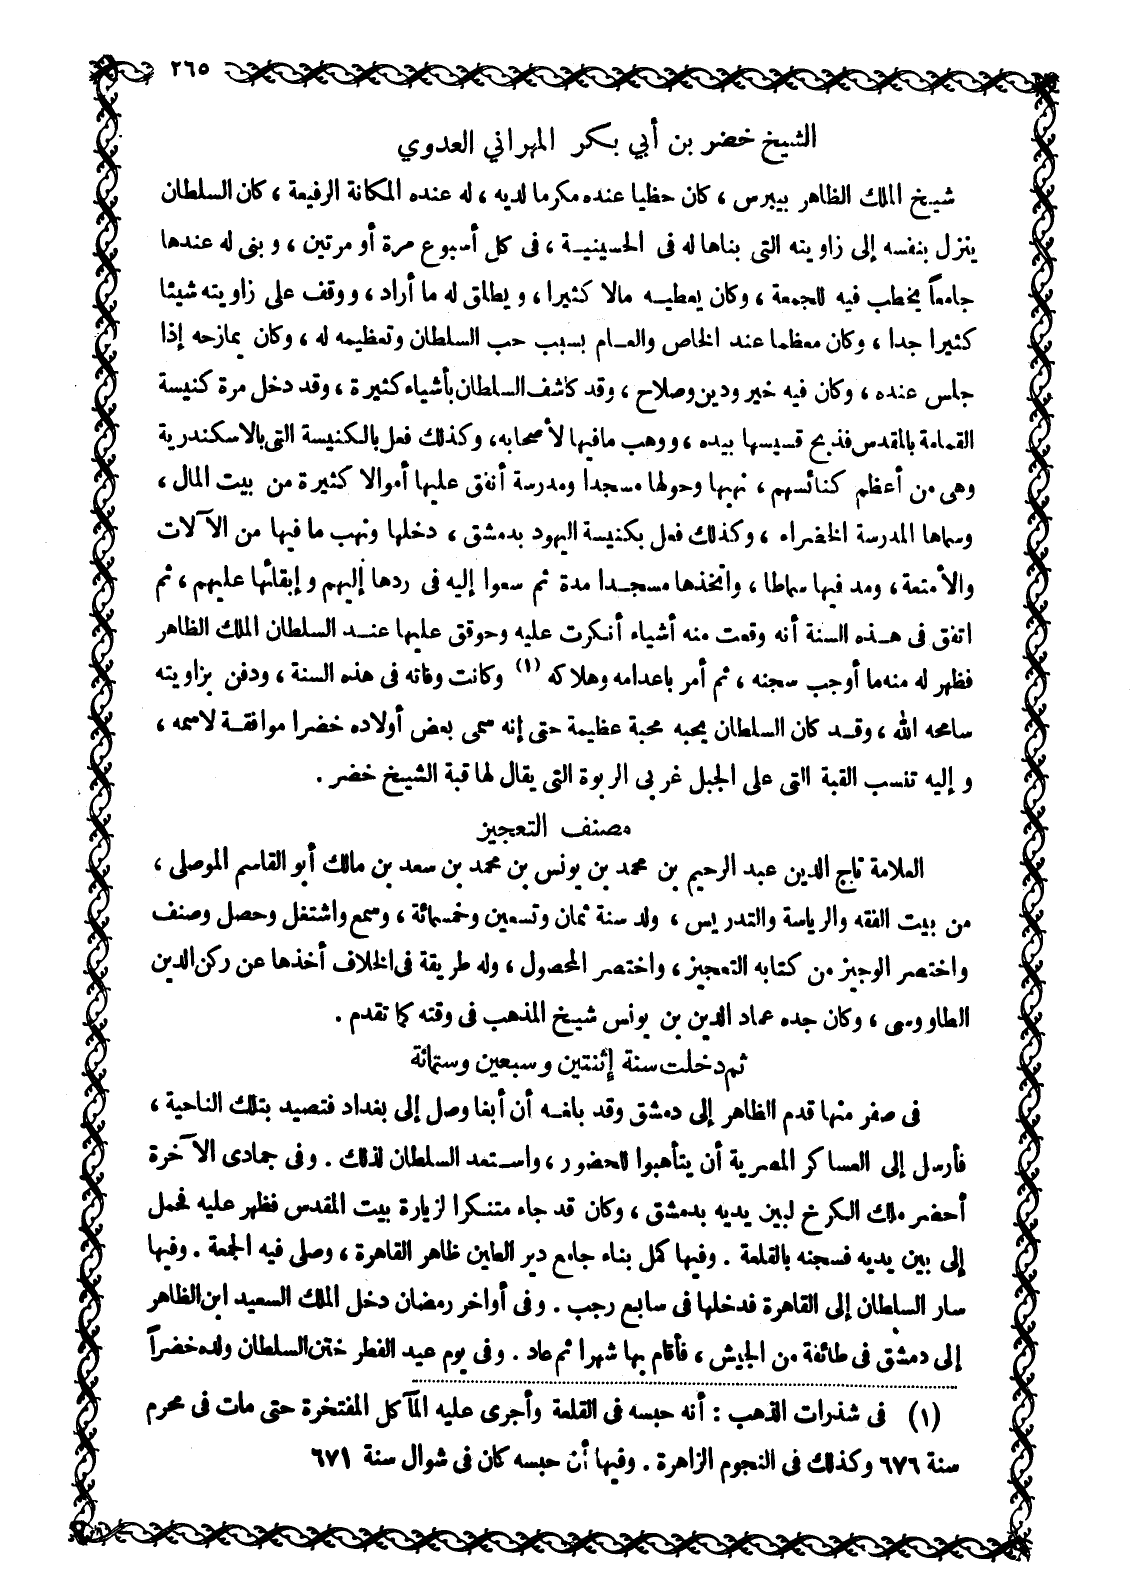 ٢٦٥
الشيخ خضر بن أبي بكر المهراني العدوي
شيخ الملك الظاهر بيبرس ، كان حظيا عنده مكرما لديه ، له عنده المكانة الرفيعة ، كان السلطان
ينزل بنفسه إلى زاويته التى بناها له فى الحسينية ، فى كل أسبوع مرة أو مرتين ، وبنى له عندها
جامعاً يخطب فيه للجمعة ، وكان يعطيه مالا كثيرا ، ويطلق له ما أراد ، ووقف على زاويته شيئا
كثيرا جدا ، وكان معظما عند الخاص والعام بسبب حب السلطان وتعظيمه له ، وكان يمازحه إذا
جلس عنده ، وكان فيه خير ودين وصلاح ، وقد كاشف السلطان بأشياء كثيرة ، وقد دخل مرة كنيسة
القمامة بالمقدس فذبح قسيسها بيده ، ووهب مافيها لأصحابه، وكذلك فعل بالكنيسة التى بالاسكندرية
وهى من أعظم كنائسهم ، نهبها وحولها مسجدا ومدرسة أنفق عليها أموالا كثيرة من بيت المال ،
وسماها المدرسة الخضراء ، وكذلك فعل بكنيسة اليهود بدمشق ، دخلها ونهب ما فيها من الآلات
والأمتعة ، ومد فيها سماطا ، واتخذها مسجدا مدة ثم سعوا إليه فى ردها إليهم وإبقائها عليهم ، ثم
اتفق فى هذه السنة أنه وقعت منه أشياء أنكرت عليه وحوقق عليها عند السلطان الملك الظاهر
فظهر له منه ما أوجب سجنه ، ثم أمر باعدامه وهلاكه (١) وكانت وفاته فى هذه السنة ، ودفن بزاويته
سامحه الله ، وقد كان السلطان يحبه محبة عظيمة حتى إنه سمى بعض أولاده خضرا موافقة لاسمه ،
وإليه تنسب القبة التى على الجبل غربى الربوة التى يقال لها قبة الشيخ خضر .
مصنف التعجيز
العلامة تاج الدين عبد الرحيم بن محمد بن يونس بن محمد بن سعد بن مالك أبو القاسم الموصلى ،
من بيت الفقه والرياسة والتدريس ، ولد سنة ثمان وتسعين وخمسمائة ، وسمع واشتغل وحصل وصنف
واختصر الوجيز من كتابه التعجيز ، واختصر المحصول ، وله طريقة فى الخلاف أخذها عن ركن الدين
الطاووسى ، وكان جده عماد الدين بن يونس شيخ المذهب فى وقته كما تقدم .
ثم دخلت سنة إثنتين وسبعين وستمائة
فى صفر منها قدم الظاهر إلى دمشق وقد بلغه أن أبغا وصل إلى بغداد فتصيد بتلك الناحية ،
فأرسل إلى العساكر المصرية أن يتأهبوا للحضور ، واستعد السلطان لذلك . وفى جمادى الآخرة
أحضر ملك الكرخ لبين يديه بدمشق ، وكان قد جاء متنكرا لزيارة بيت المقدس فظهر عليه فحمل
إلى بين يديه فسجنه بالقلعة . وفيها كمل بناء جامع دير الطين ظاهر القاهرة ، وصلى فيه الجمعة . وفيها
سار السلطان إلى القاهرة فدخلها فى سابع رجب . وفى أواخر رمضان دخل الملك السعيد ابن الظاهر
إلى دمشق فى طائفة من الجيش ، فأقام بها شهرا ثم عاد . وفى يوم عيد الفطر ختن السلطان ولده خضراً
(١) فى شذرات الذهب : أنه حبسه فى القلعة وأجرى عليه المآكل المفتخرة حتى مات فى محرم
سنة ٦٧٦ وكذلك فى النجوم الزاهرة . وفيها أن حبسه كان فى شوال سنة ٦٧١